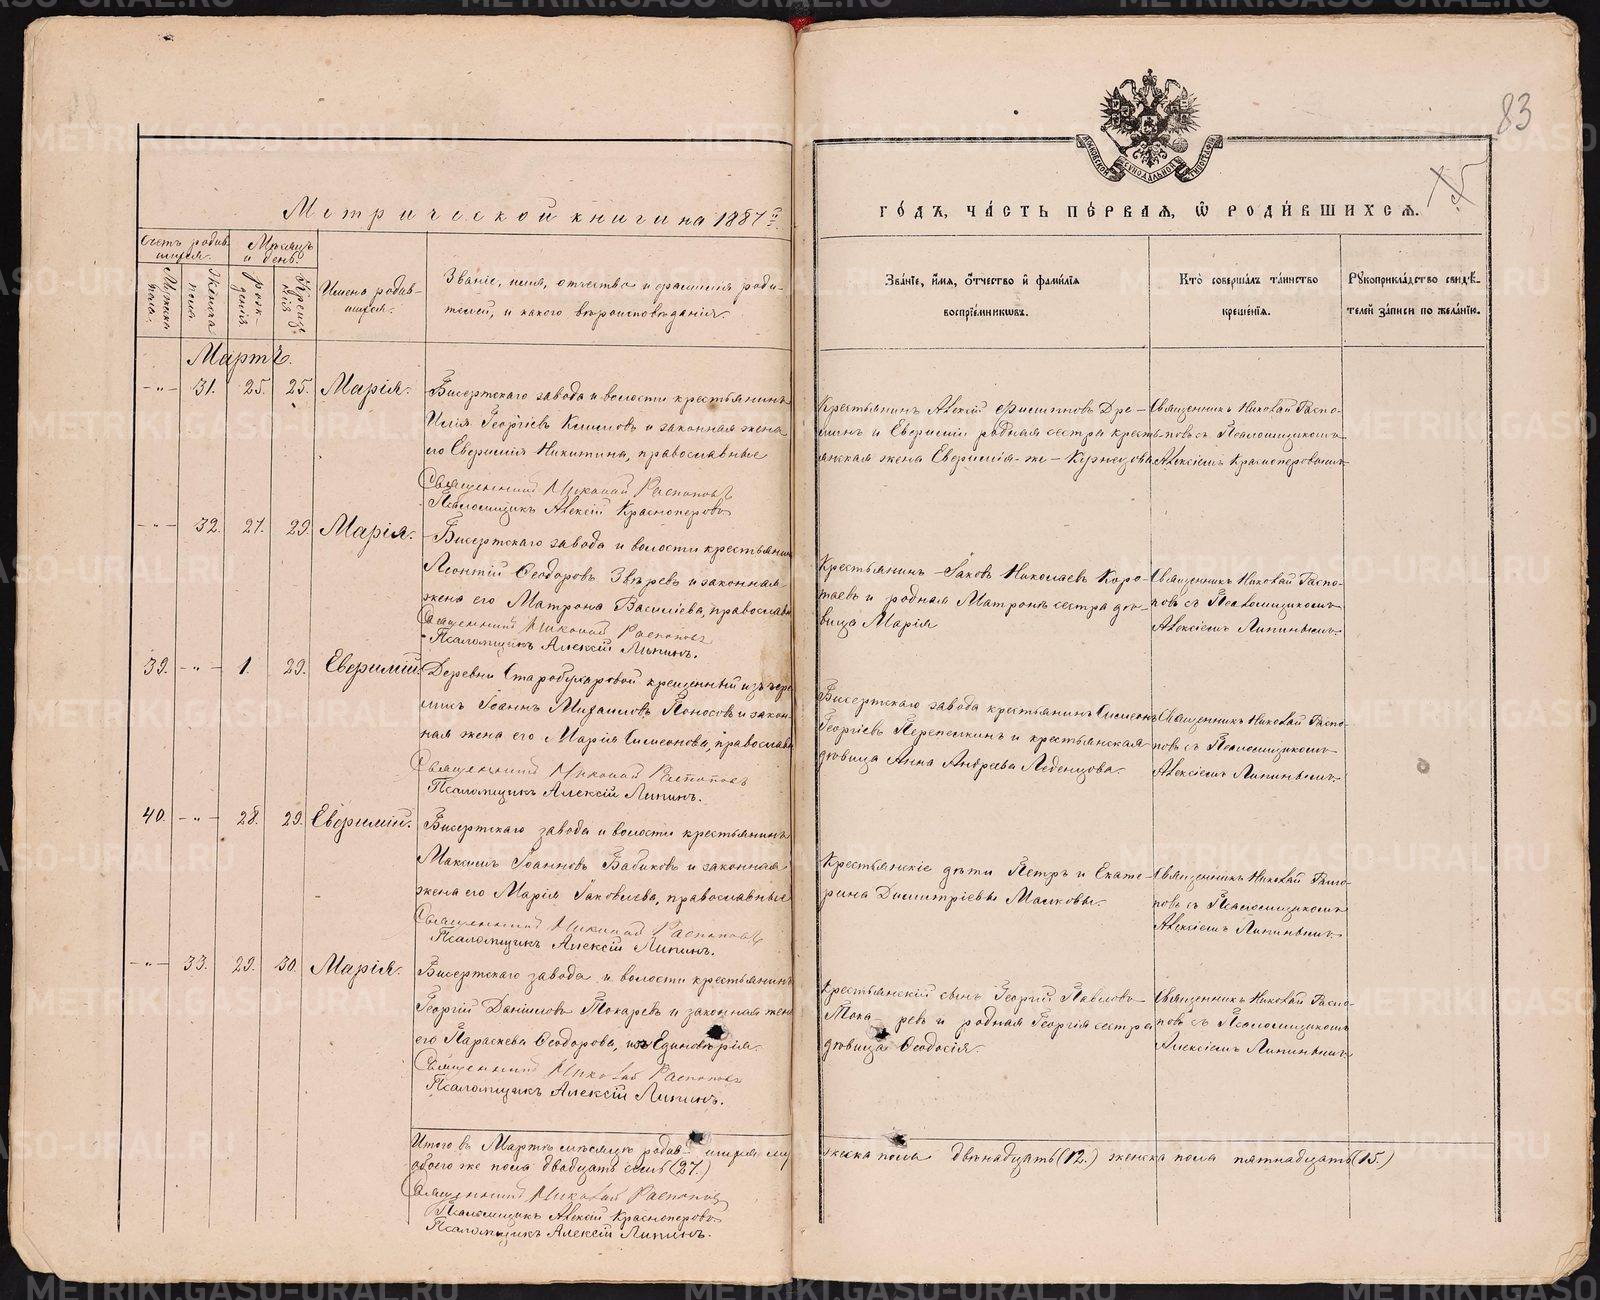 83
Метрической книги на 1887й
го́дъ, ча́сть пе́рвая, ѡ҆ роди́вшихся.
Счетъ родив-
шихся.
Мѣсяцъ
и день.
Мужска
пола.
Женска
пола.
рож-
денія
Креще-
нія
Имена родив-
шихся.
Званіе, имя, отчество и фамилія роди-
телей, и какого вѣроисповѣданія.
Зва́нїе, и҆́мя, ѻ҆́тчество и҆ фами́лїа
воспрїе́мникѡвъ.
Кто̀ соверша́лъ та́инство
креще́нїя.
Рꙋкоприкла́дство свидѣ́-
телей за́писи по жела́нїю.
Мартъ.
-"- 31. 25. 25. Марія.
Бисертскаго завода и волости крестьянинъ
Илія Георгіевъ Климовъ и законная жена
его Евфимія Никитина, православные
Священникъ Николай Распоповъ
Псаломщикъ Алексій Красноперовъ
Крестьянинъ Алексій Филипповъ Дре-
и Евфиміи родная сестра кресть-
янская жена Евфимія-же-Кузнецова
Священникъ Николай Распо-
повъ съ Псаломщикомъ
Алексіемъ Красноперовымъ
-"- 32. 27. 29. Марія.
Бисертскаго завода и волости крестьянинъ
Леонтій Ѳеодоровъ Звѣревъ и законная
жена его Матрона Василіева, православн
Священникъ Николай Распоповъ
Псаломщикъ Алексій Липинъ.
Крестьянинъ Іаковъ Николаевъ Коро-
таевъ и родная Матронѣ сестра дѣ-
вица Марія
Священникъ Николай Распо-
повъ съ Псаломщикомъ
Алексіемъ Липинымъ
39. -"- 1. 29. Евфимій.
Деревни Старобухаровой крещенный изъ чере-
мисъ Іоаннъ Михаиловъ Поносовъ и закон-
ная жена его Марія Симеонова, православн
Священникъ Николай Распоповъ
Псаломщикъ Алексій Липинъ.
Бисертскаго завода крестьянинъ Симеонъ
Георгіевъ Перепелкинъ и крестьянская
дѣвица Анна Андреева Леденцова.
Священникъ Николай Распо-
повъ съ Псаломщикомъ
Алексіемъ Липинымъ
40. -"- 28. 29. Евфимій.
Бисертскаго завода и волости крестьянинъ
Максимъ Іоанновъ Бабиковъ и законная
жена его Марія Іаковлева, православные
Священникъ Николай Распоповъ
Псаломщикъ Алексій Липинъ.
Крестьянскіе дѣти Петръ и Екате-
рина Димитріевы Малковы.
Священникъ Николай Распо-
повъ съ Псаломщикомъ
Алексіемъ Липинымъ
-"- 33. 29. 30. Марія.
Бисертскаго завода и волости крестьянинъ
Георгій Даніиловъ Токаревъ и законная жена
его Параскева Ѳеодорова, изъ Единовѣрія.
Священникъ Николай Распоповъ
Псаломщикъ Алексій Липинъ.
Крестьянскій сынъ Георгій Павловъ
Токаревъ и родная Георгія сестра
дѣвица Ѳеодосія.
Священникъ Николай Распо-
повъ съ Псаломщикомъ
Алексіемъ Липинымъ
Итого въ Мартѣ мѣсяцѣ родив-шихся му
жеска пола двѣнадцать (12.) женска пола пятнадцать (15.)
обоего же пола двадцать семь (27.)
Священникъ Николай Распоповъ
Псаломщикъ Алексій Красноперовъ
Псаломщикъ Алексій Липинъ.
METRIKI.GASO-URAL.RU